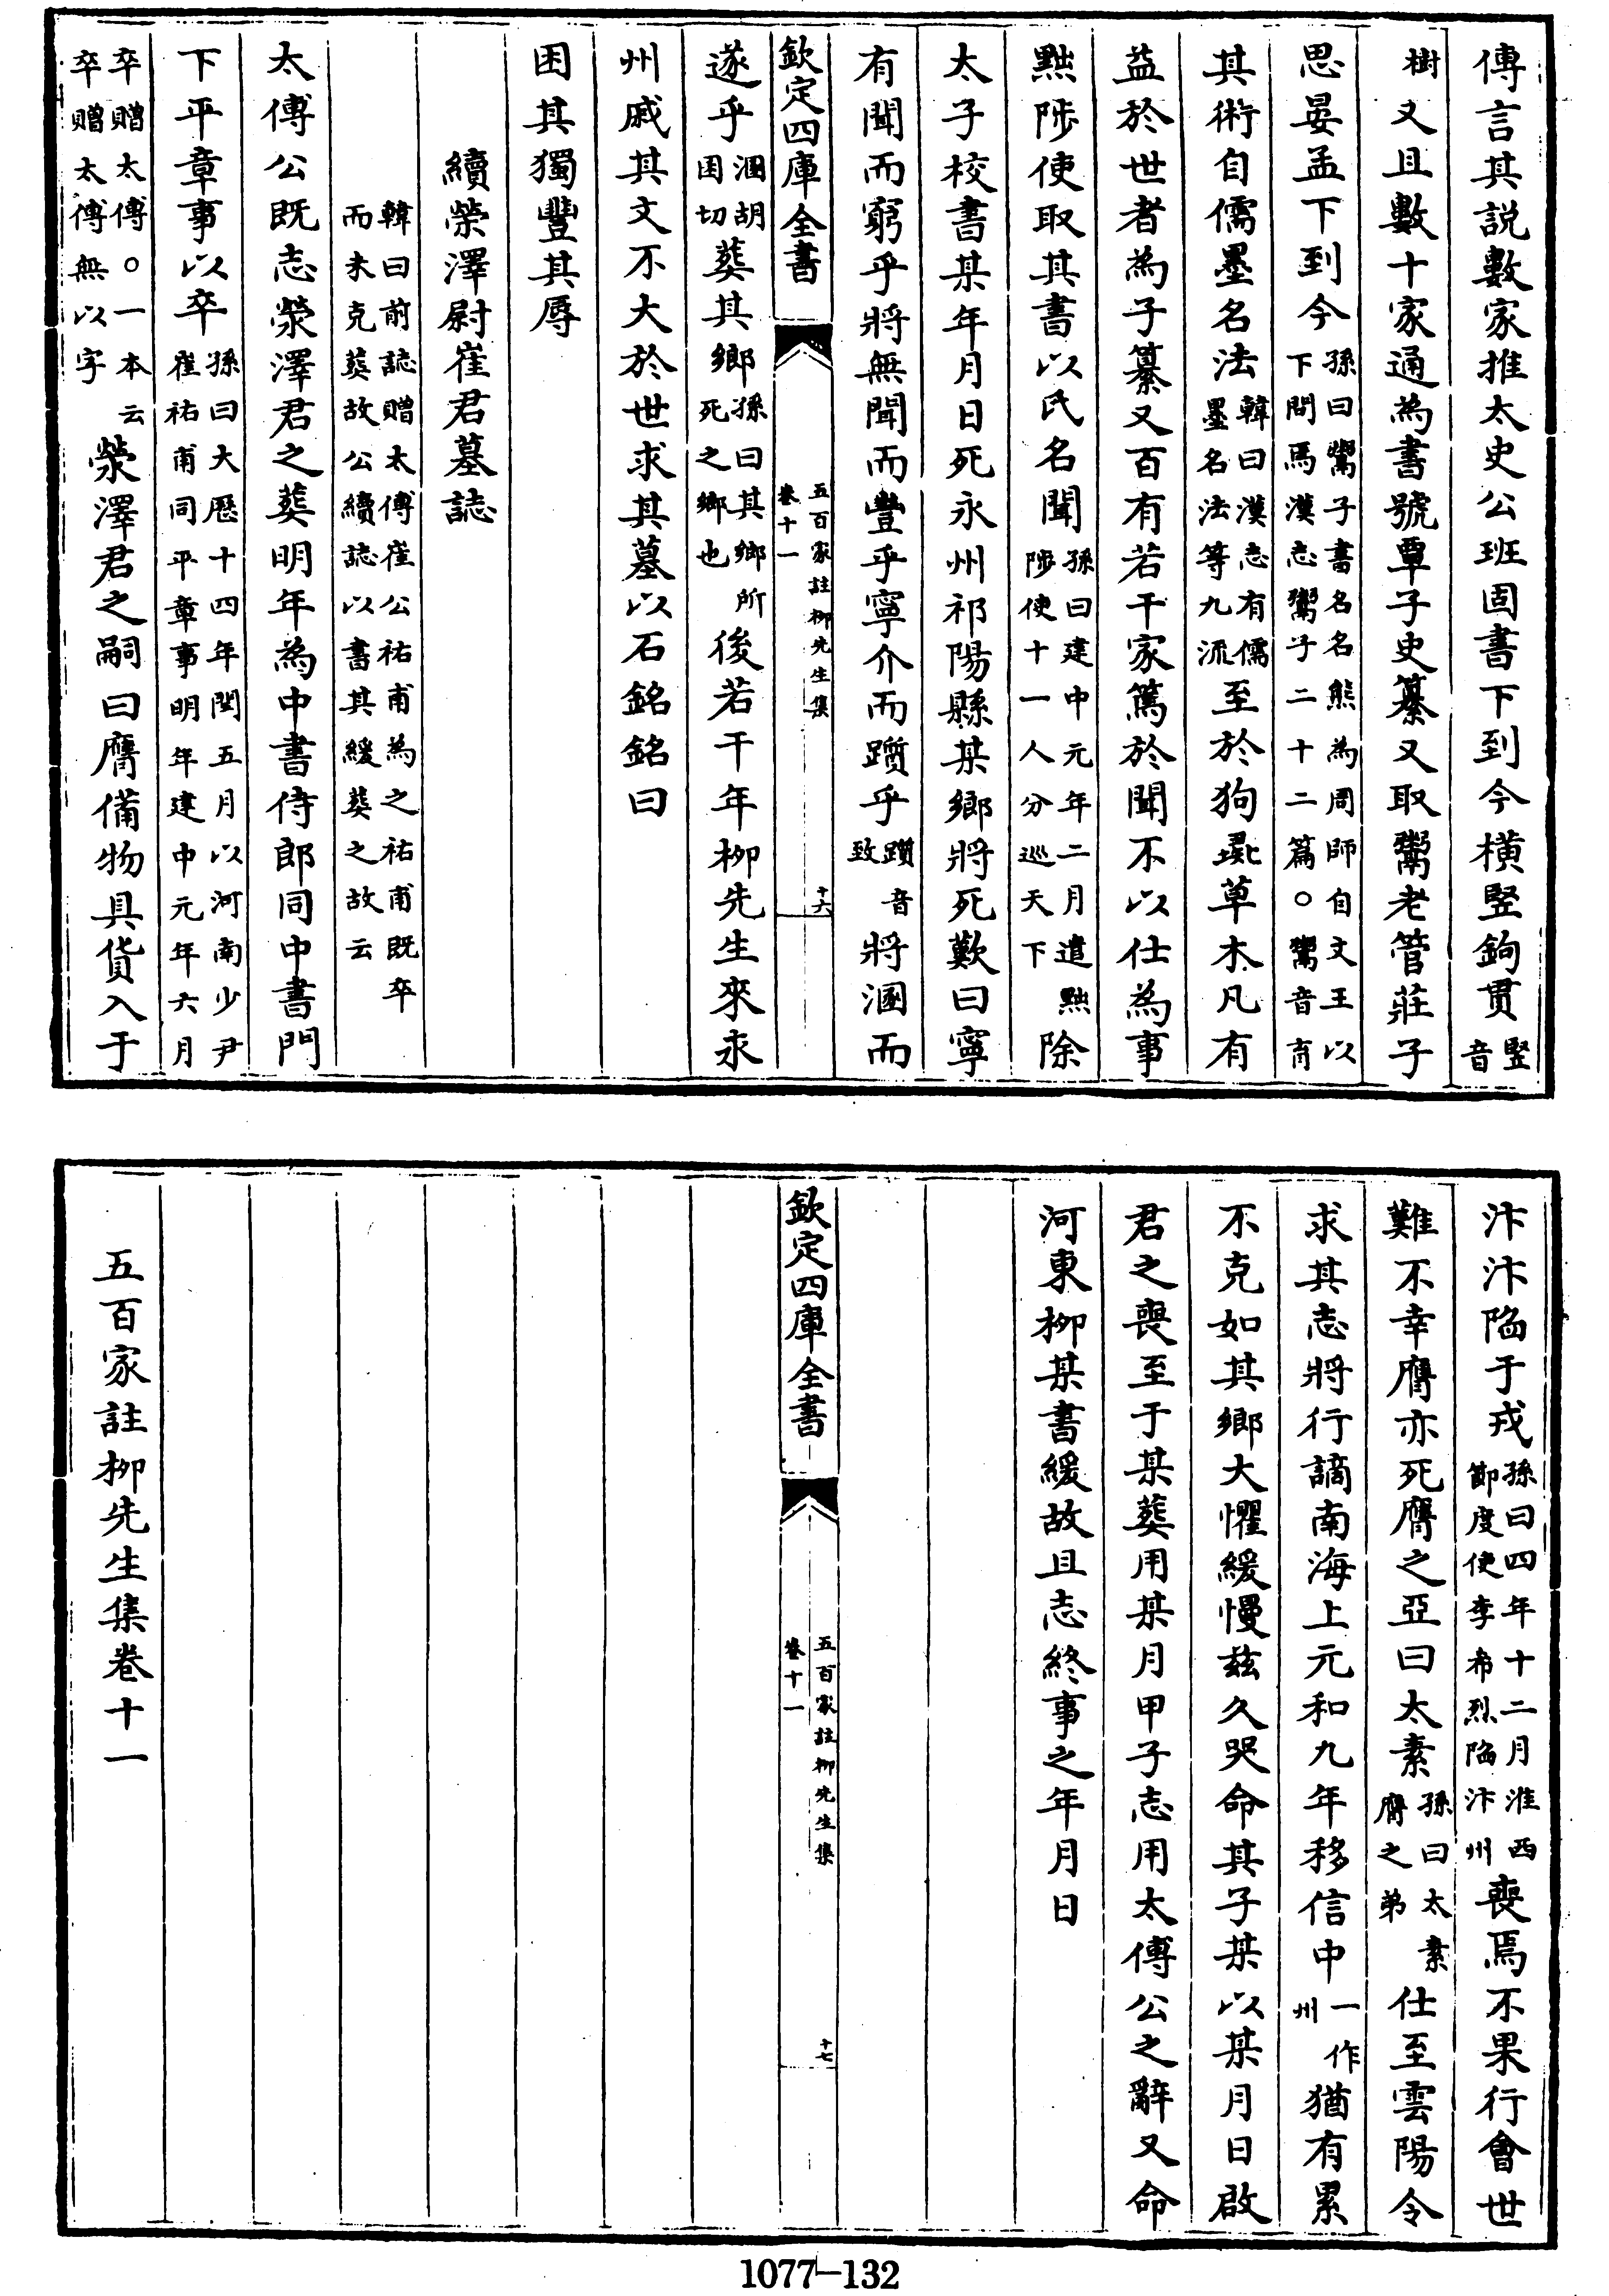 傳言其説數家推太史公班固書下到今橫竪鉤貫竪音
樹又且數十家通為書號覃子史纂又取鬻老管莊子
思晏孟下到今孫曰鬻子書名名熊為周師自文王以下問焉漢志鬻子二十二篇○鬻音育
其術自儒墨名法韓曰漢志有儒墨名法等九流至於狗彘草木凡有
益於世者為子纂又百有若干家篤於聞不以仕為事
黜陟使取其書以氏名聞孫曰建中元年二月遣黜陟使十一人分巡天下除
太子校書某年月日死永州祁陽縣某鄉將死歎曰寧
有聞而窮乎將無聞而豐乎寧介而躓乎躓音致將溷而
欽定四庫全書
五百家註柳先生集
卷十一
十六
遂乎溷胡困切葬其鄉孫曰其鄉所死之鄉也後若干年柳先生來永
州戚其文不大於世求其墓以石銘銘曰
困其獨豐其辱
續榮澤尉崔君墓誌
韓曰前誌贈太傅崔公祐甫為之祐甫既卒
而未克葬故公續誌以書其緩葬之故云
太傅公既志滎澤君之葬明年為中書侍郎同中書門
下平章事以卒孫曰大歷十四年閏五月以河南少尹崔祐甫同平章事明年建中元年六月
卒贈太傅○一本云卒贈太傅無以字滎澤君之嗣曰膺備物具貨入于
汴汴陷于戎孫曰四年十二月淮西節度使李希烈陷汴州喪焉不果行會世
難不幸膺亦死膺之亞曰太素孫曰太素膺之弟仕至雲陽令
求其志將行謫南海上元和九年移信中一作州猶有累
不克如其鄉大懼緩慢玆久哭命其子某以某月日啟
君之喪至于某葬用某月甲子志用太傅公之辭又命
河東柳某書緩故且志終事之年月日
欽定四庫全書
五百家註柳先生集
卷十一
十七
五百家註柳先生集卷十一
1077-132